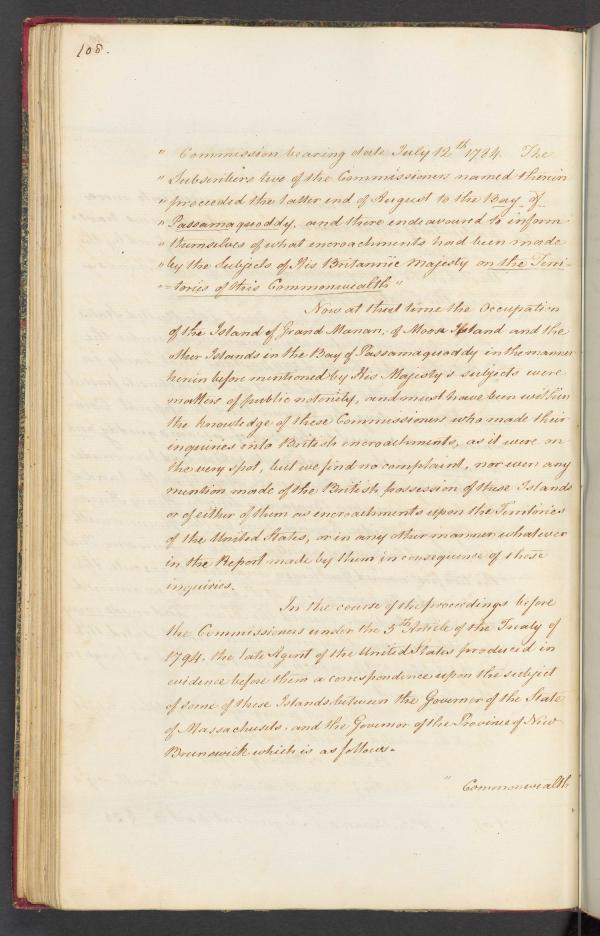 108.
" Commission bearing date July 12th 1784. The
" Subscribers two of the Commissioners named therein
" proceeded the latter end of August to the Bay of
" Passamaquoddy, and there endeavoured to inform
" themselves of what encroachments had been made
" by the Subjects of His Britannic Majesty on the Terri-
"=tories of this Commonwealth "
Now at that time the Occupation
of the Island of Grand Manan, of Moose Island and the
other Islands in the Bay of Passamaquoddy in the manner
herein before mentioned by His Majesty's subjects were
matters of public notoriety, and must have been within
the knowledge of these Commissioners who made their
inquiries into British encroachments, as it were on
the very spot, but we find no complaint, nor even any
mention made of the British possession of these Islands
or of either of them as encroachments upon the Territories
of the United States, or in any other manner whatever
in the Report made by them in consequence of those
inquiries.
In the course of the proceedings before
the Commissioners under the 5th Article of the Treaty of
1794. the late Agent of the United States produced in
evidence before them a correspondence upon the subject
of some of these Islands between the Governor of the State
of Massachusets. and the Governor of the Province of New
Brunswick which is as follows.
" Commonwealth